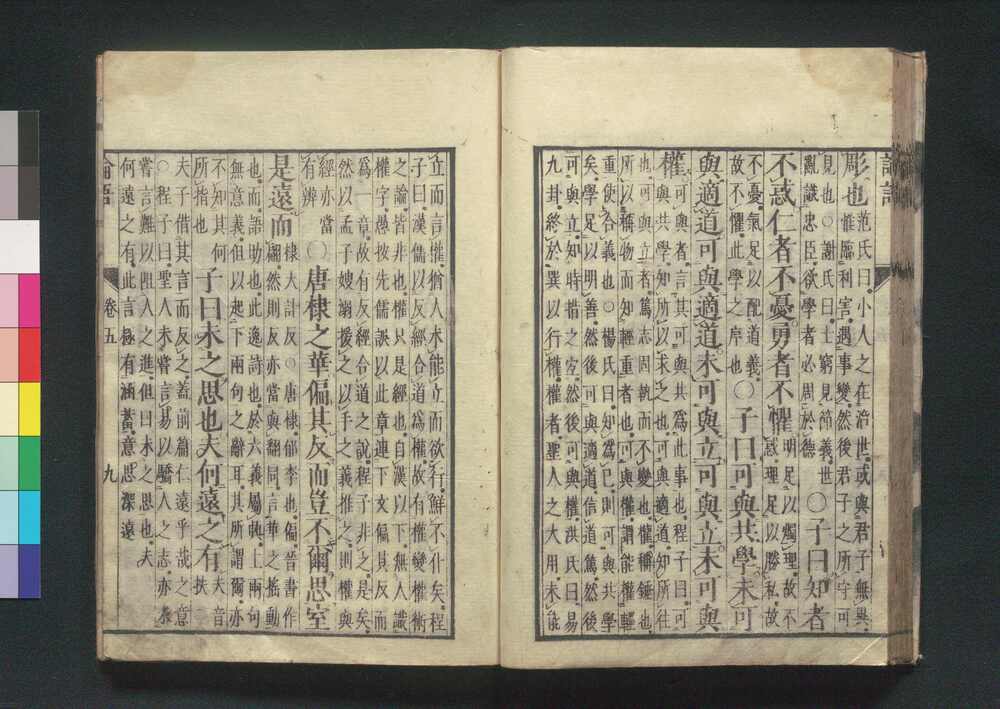 論語
彫也范氏曰小人之在治世或與君子無異
惟臨利害遇事變然後君子之所守可
見也○謝氏曰士窮見節義世
亂識忠臣欲學者必周於德○子曰知者
不惑仁者不憂勇者不懼明足以燭理故不
惑理足以勝私故
不憂氣足以配道義
故不懼此學之序也○子曰可與共學未可
與適道可與適道未可與立可與立未可與
權可與者言其可與共爲此事也程子曰可
與共學知所以求之也可與適道知所往
也可與立者篤志固執而不變也權稱錘也
所以稱物而知輕重者也可與權謂能權輕
重使合義也○楊氏曰知爲己則可與共學
矣學足以明善然後可與適道信道篤然後
可與立知時措之宜然後可與權洪氏曰易
九卦終於巽以行權權者聖人之大用未能
立而言權猶人未能立而欲行鮮不仆矣程
子曰漢儒以反經合道爲權故有權變權術
之論皆非也權只是經也自漢以下無人識
權字愚按先儒誤以此章連下文偏其反而
爲一章故有反經合道之說程子非之是矣
然以孟子嫂溺援之以手之義推之則權與
經亦當
有辨○唐棣之華偏其反而豈不爾思室
是遠而棣大計反○唐棣郁李也偏晉書作
翩然則反亦當與翻同言華之搖動
也而語助也此逸詩也於六義屬興上兩句
無意義但以起下兩句之辭耳其所謂爾亦
不知其何
所指也子曰未之思也夫何遠之有夫音
扶
夫子借其言而反之蓋前篇仁遠乎哉之意
○程子曰聖人未嘗言易以驕人之志亦未
嘗言難以阻人之進但曰未之思也夫
何遠之有此言極有涵蓄意思深遠
論語 卷五 九